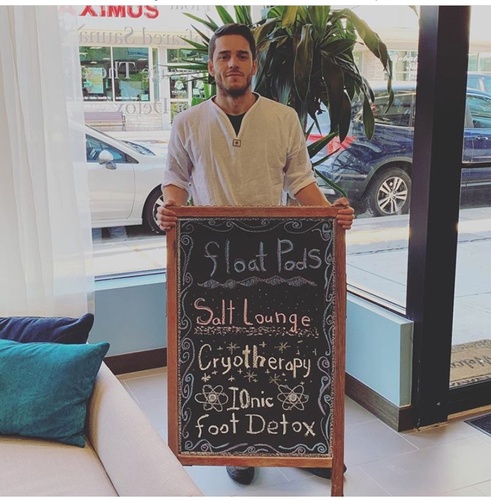 XIMUS
Float Pods
Salt Lounge
Cryotherapy
IOnic
Foot Detox